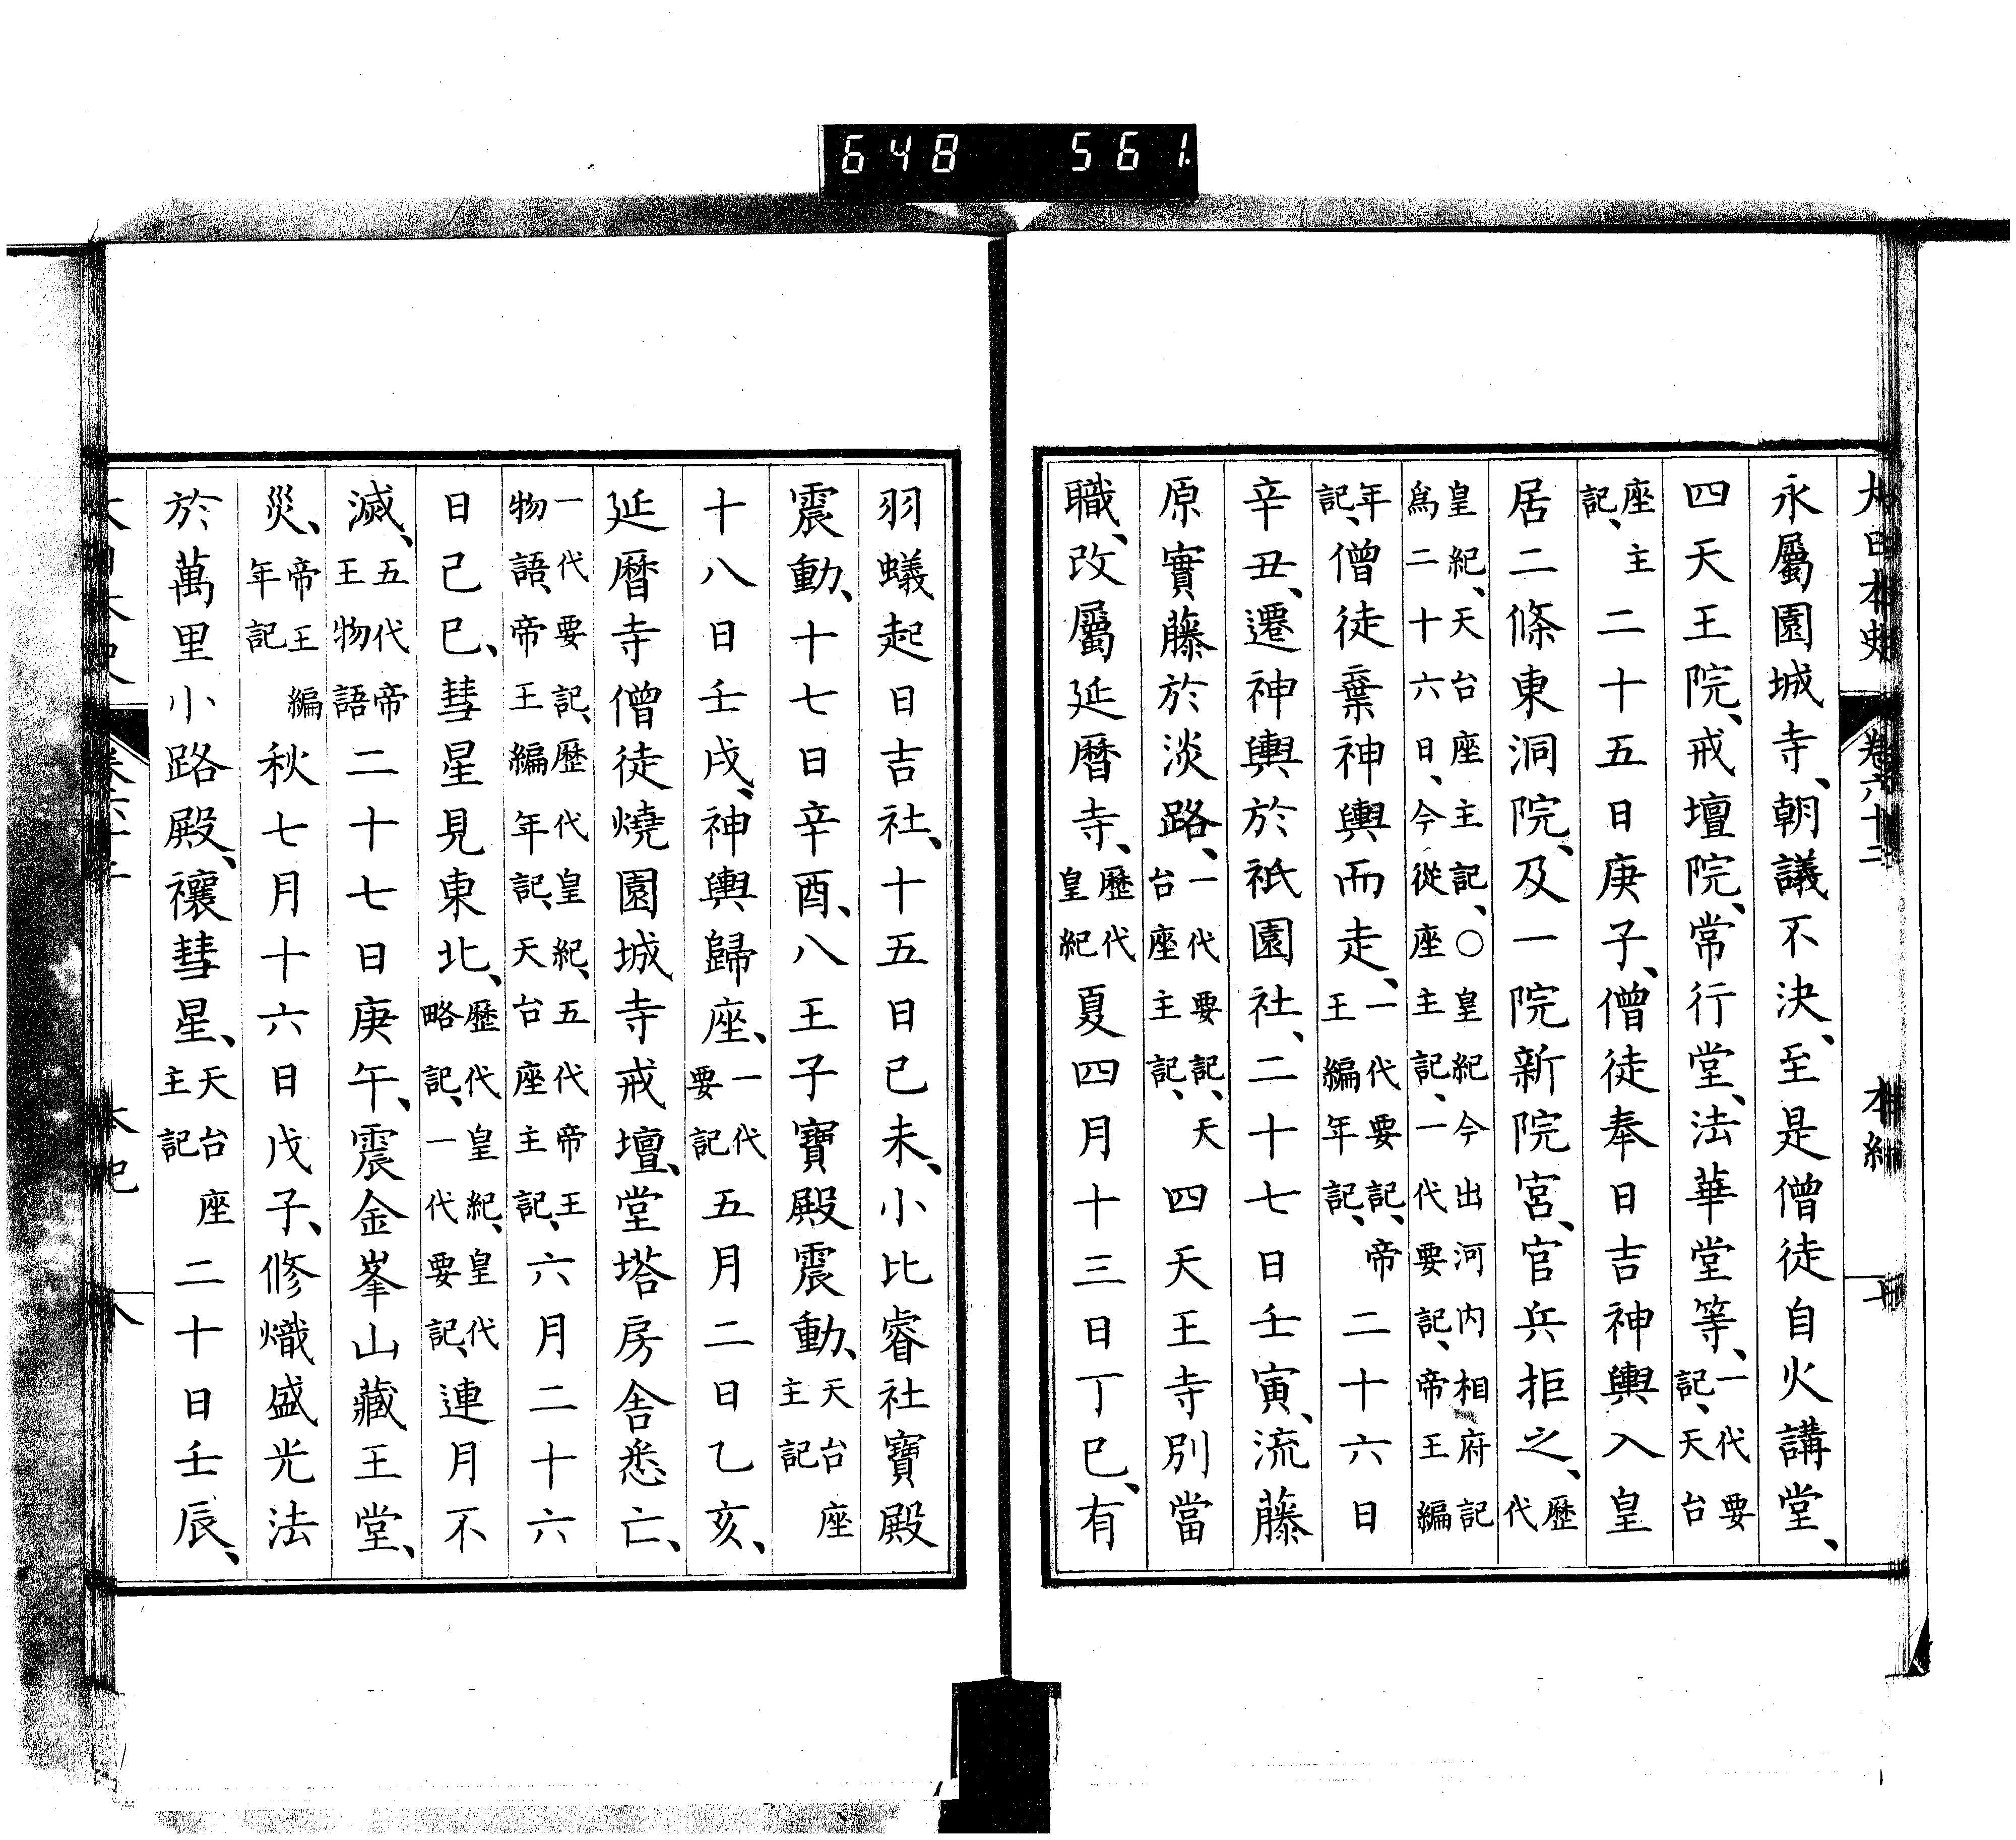 648 561
大日本史 卷六十二 本紀
永屬園城寺、朝議不決、至是僧徒自火講堂、
四天王院、戒壇院、常行堂、法華堂等、一代要記、天台
座主記、二十五日庚子、僧徒奉日吉神輿入皇
居二條東洞院、及一院新院宮、官兵拒之、歷代
皇紀、天台座主記、○皇紀今出河内相府記
爲二十六日、今從座主記、一代要記、帝王編
年記、僧徒棄神輿而走、一代要記、帝王編年記、二十六日
辛丑、遷神輿於祇園社、二十七日壬寅、流藤
原實藤於淡路、一代要記、天台座主記、四天王寺別當
職、改屬延暦寺、歷代皇紀夏四月十三日丁巳、有
羽蟻起日吉社、十五日己未、小比睿社寶殿
震動、十七日辛酉、八王子寶殿震動、天台座主記
十八日壬戌、神輿歸座、一代要記五月二日乙亥、
延暦寺僧徒燒園城寺戒壇、堂塔房舍悉亡、
一代要記、歷代皇紀、五代帝王物語、帝王編年記、天台座主記、六月二十六
日己巳、彗星見東北、歷代皇紀、皇代略記、一代要記、連月不
滅、五代帝王物語二十七日庚午、震金峯山藏王堂、
災、帝王編年記秋七月十六日戊子、修熾盛光法
於萬里小路殿、禳彗星、天台座主記二十日壬辰、